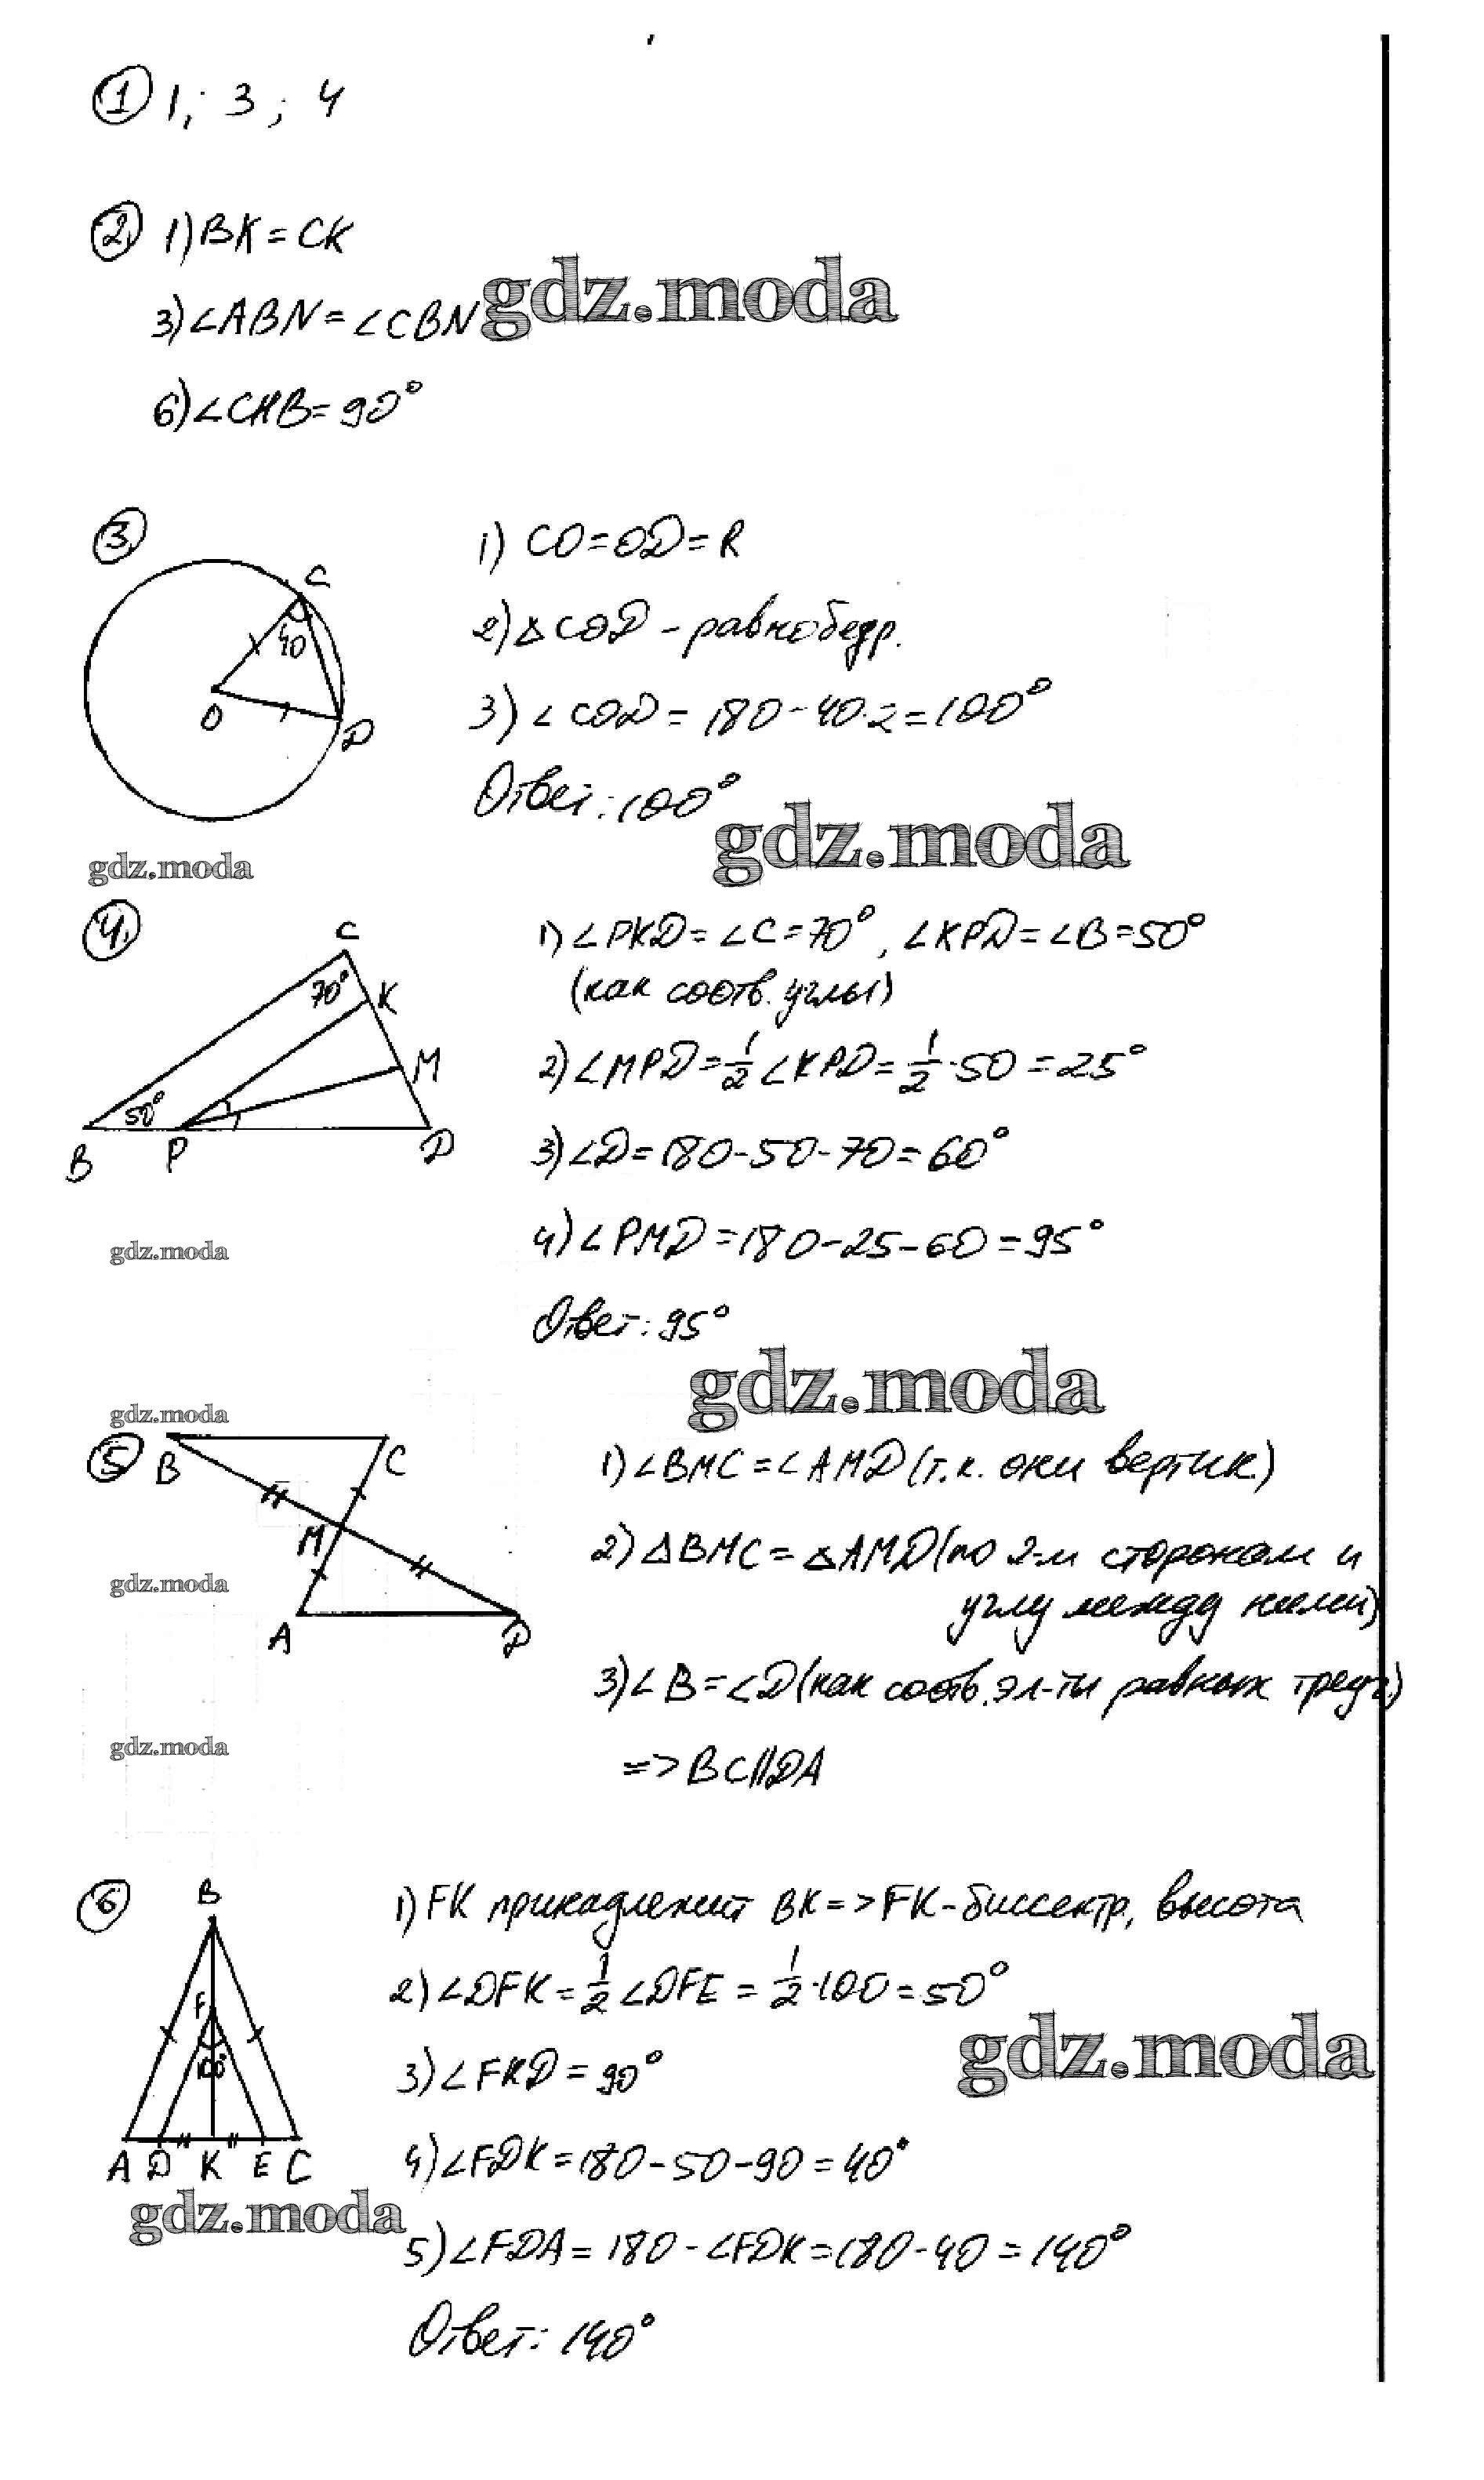 1 1; 3; 4
2 1) BK = CK
3) ∠ABN = ∠CBN
gdz.moda
6) ∠CHB = 90°
3
C
40
O
D
1) CO = OD = R
2) △COD - равнобедр.
3) ∠COD = 180 - 40·2 = 100°
Ответ: 100°
gdz.moda
gdz.moda
4.
C
70°
K
M
50°
B P D
1) ∠PKD = ∠C = 70°, ∠KPD = ∠B = 50°
(как соотв. углы)
2) ∠MPD = 1/2 ∠KPD = 1/2 · 50 = 25°
3) ∠D = 180 - 50 - 70 = 60°
4) ∠PMD = 180 - 25 - 60 = 95°
Ответ: 95°
gdz.moda
gdz.moda
gdz.moda
5
B C
M
A D
gdz.moda
gdz.moda
1) ∠BMC = ∠AMD (т.к. они вертик.)
2) △BMC = △AMD (по 2-м сторонам и
углу между ними)
3) ∠B = ∠D (как соотв. эл-ты равных треуг.)
=> BC || DA
6
B
F
100°
A D K E C
gdz.moda
1) FK принадлежит BK => FK - биссектр., высота
2) ∠DFK = 1/2 ∠DFE = 1/2 · 100 = 50°
gdz.moda
3) ∠FKD = 90°
4) ∠FDK = 180 - 50 - 90 = 40°
5) ∠FDA = 180 - ∠FDK = 180 - 40 = 140°
Ответ: 140°